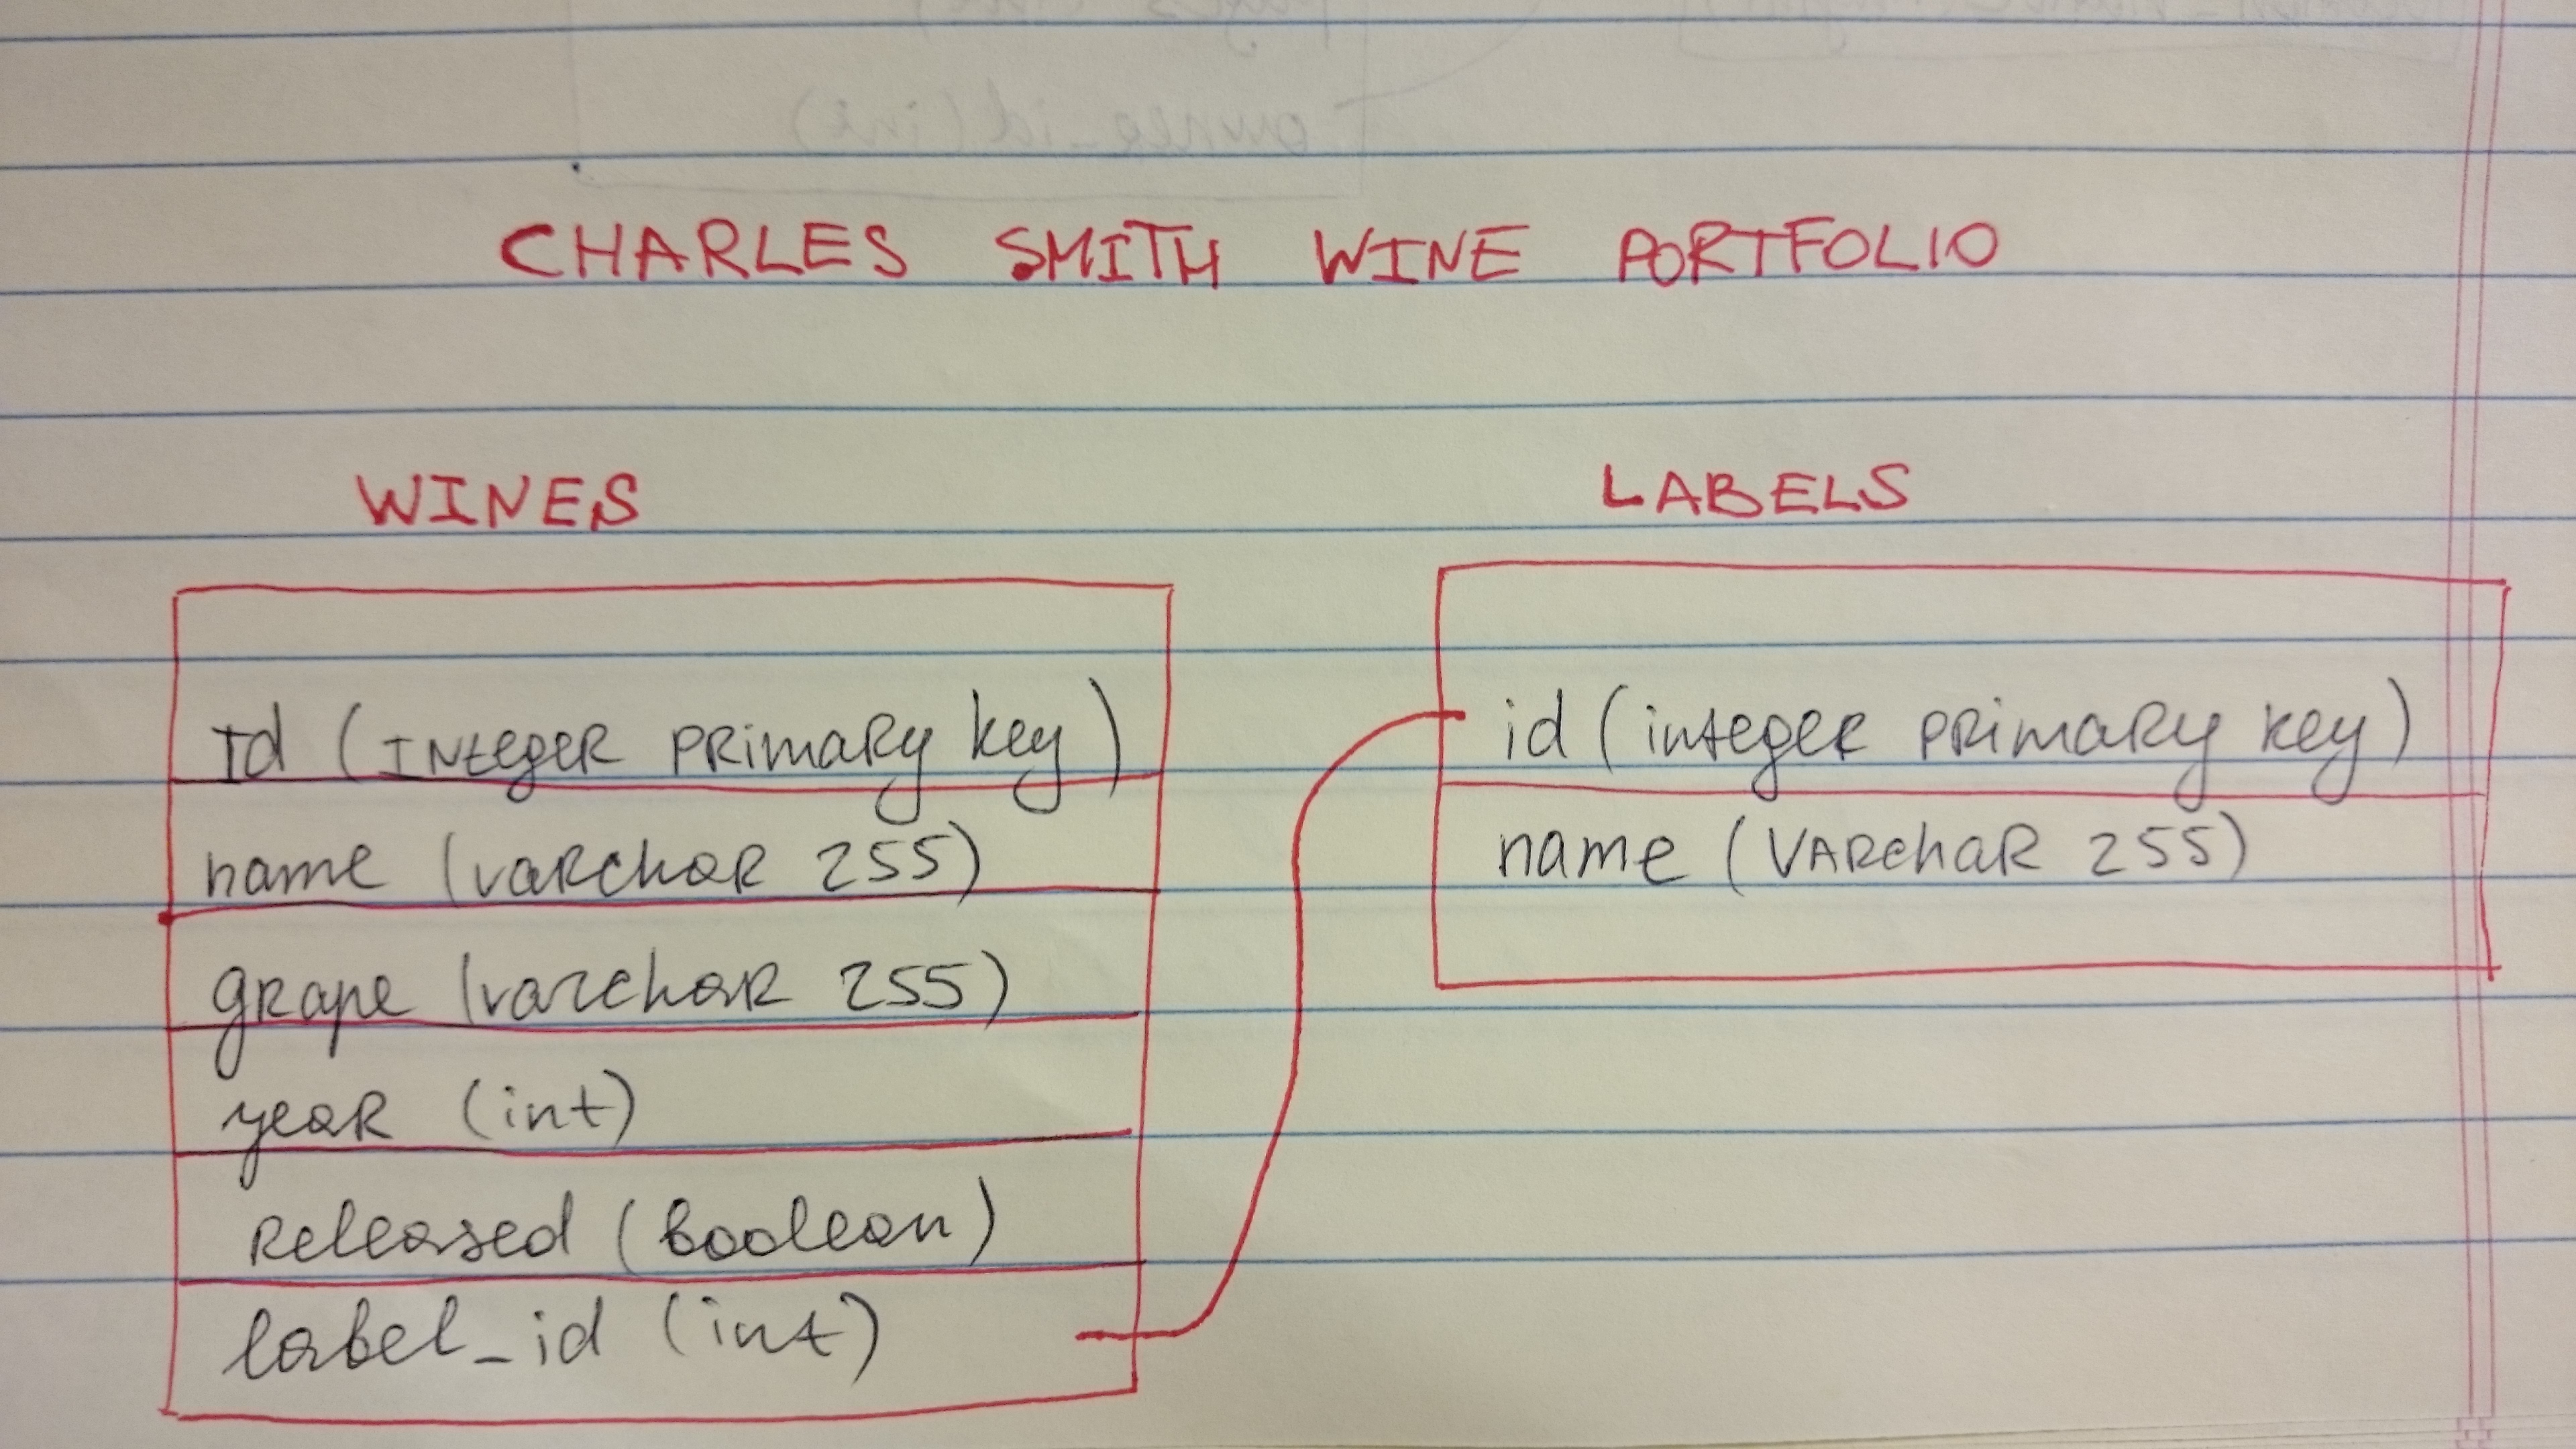 CHARLES SMITH WINE PORTFOLIO
WINES
Id (INteger primary key)
name (varchar 255)
grape (varchar 255)
year (int)
released (boolean)
label_id (int)
LABELS
id (integer primary key)
name (VARchaR 255)